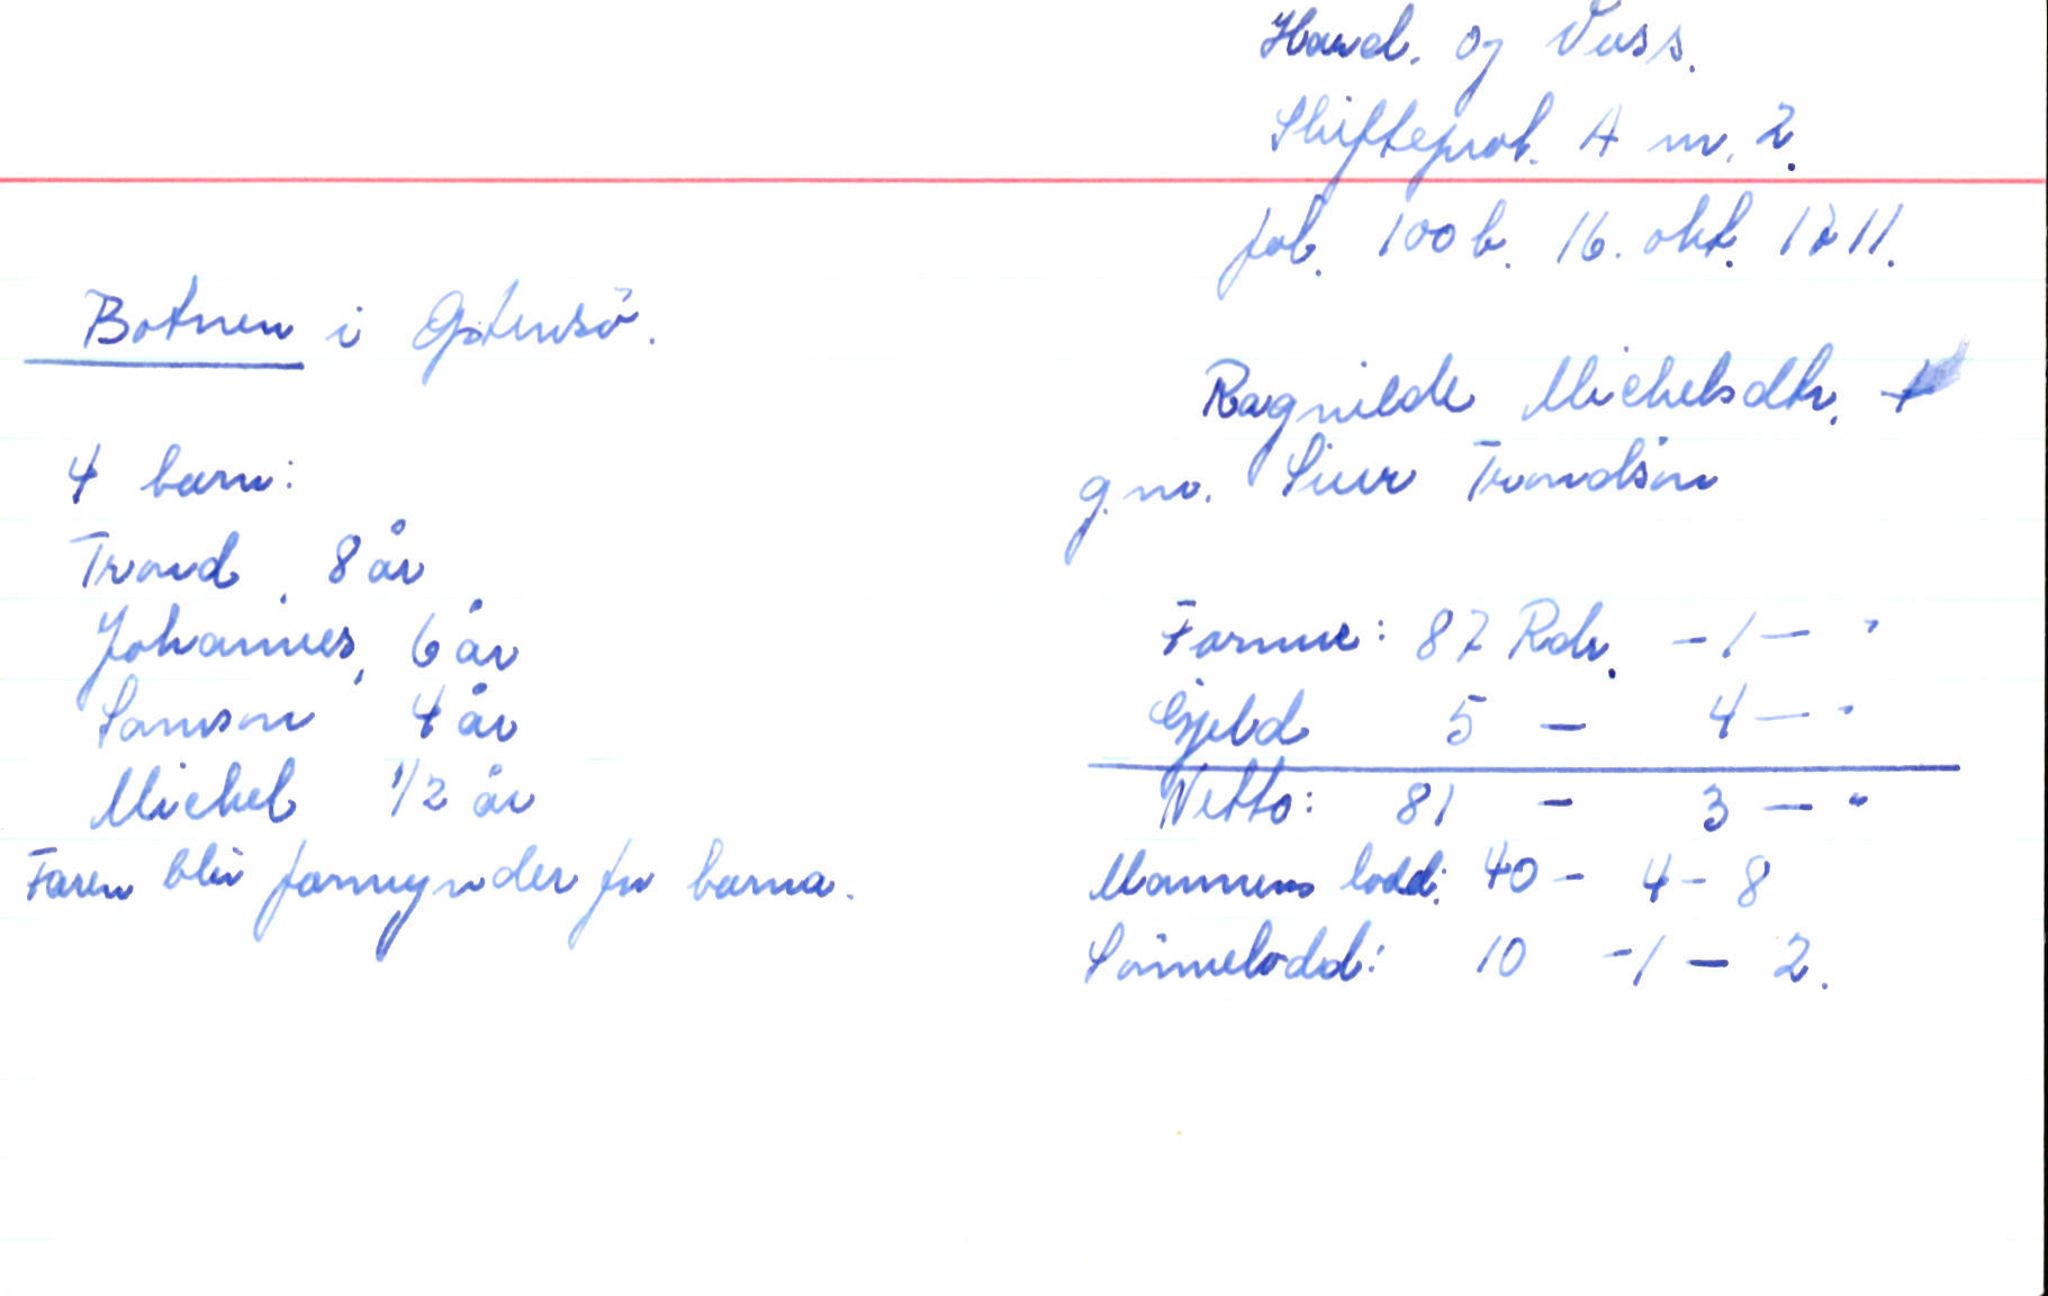 Hard. og Voss.
Skifteprot. A nr. 2.
fol. 100 b. 16. okt. 1711.
Botnen i Östensö.
Ragnilde Michelsdtr. +
g.m. Siur Trondsön
4 barn:
Trond, 8 år
Johannes, 6 år
Samson 4 år
Michel 1/2 år
Faren blir formynder for barna.
Formue: 87 Rdr. - 1 - "
Gjeld 5 - 4 - "
Netto: 81 - 3 - "
Mannens lodd: 40 - 4 - 8
Sönnelodd: 10 - 1 - 2.